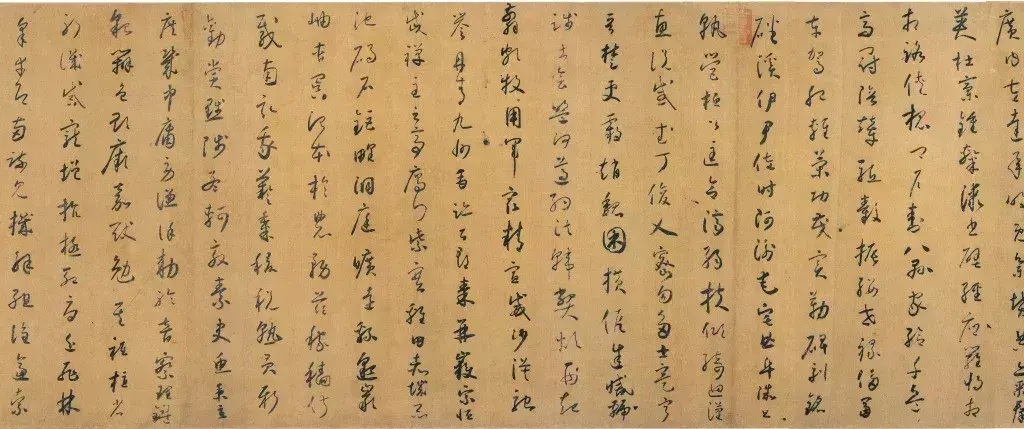 廣內左達承明既集墳典亦聚群
英杜稾鍾隸漆書壁經府羅將
相路俠槐卿戶封八縣家給千兵
高冠陪輦驅轂振纓世祿侈富
車駕肥輕策功茂實勒碑刻銘
磻溪伊尹佐時阿衡奄宅曲阜微旦
孰營桓公匡合濟弱扶傾綺迴漢
惠說感武丁俊乂密勿多士寔寧
晉楚更霸趙魏困橫假途滅虢
踐土會盟何遵約法韓弊煩刑起
翦頗牧用軍最精宣威沙漠馳
譽丹青九州禹跡百郡秦并嶽宗恆
岱禪主云亭雁門紫塞雞田赤城昆
池碣石鉅野洞庭曠遠綿邈巖
岫杳冥治本於農務茲稼穡俶
載南畝我藝黍稷稅熟貢新
勸賞黜陟孟軻敦素史魚秉直
庶幾中庸勞謙謹敕聆音察理鑑
貌辨色貽厥嘉猷勉其祗植省
躬譏誡寵增抗極殆辱近恥林
皋幸即兩疏見機解組誰逼索